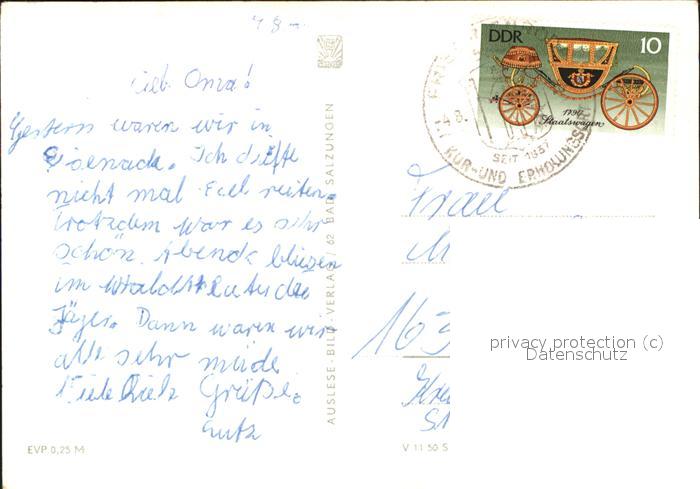 Lieb Oma!
Gestern waren wir in
Eisenach. Ich durfte
nicht mal Esel reiten.
Trotzdem war es sehr
schön. Abends bliesen
im Wald die
Jäger. Dann waren wir
alle sehr müde
Viele Grüße
Lutz
EVP 0,25 M
AUSLESE-BILD-VERLAG / 62 BAD SALZUNGEN
DDR
10
1790
Staatswagen
-4.8.
SEIT 1837
KUR- UND ERHOLUNGS
Frau
165
V 11 50 S
privacy protection (c)
Datenschutz